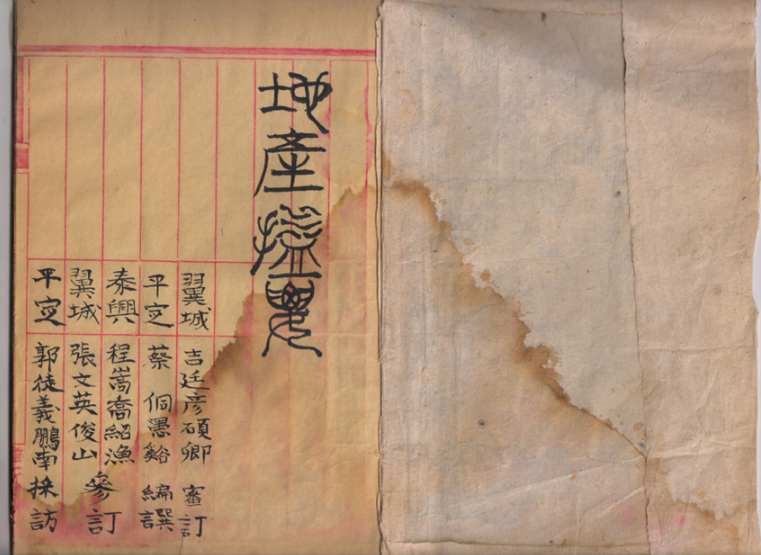 地產㨗要
翼城 吉廷彥碩卿 審訂
平定 蔡侗愚谿 編譔
泰興 程嵩喬紹漁 參訂
翼城 張文英俊山
平定 郭徒義鵬南 採訪